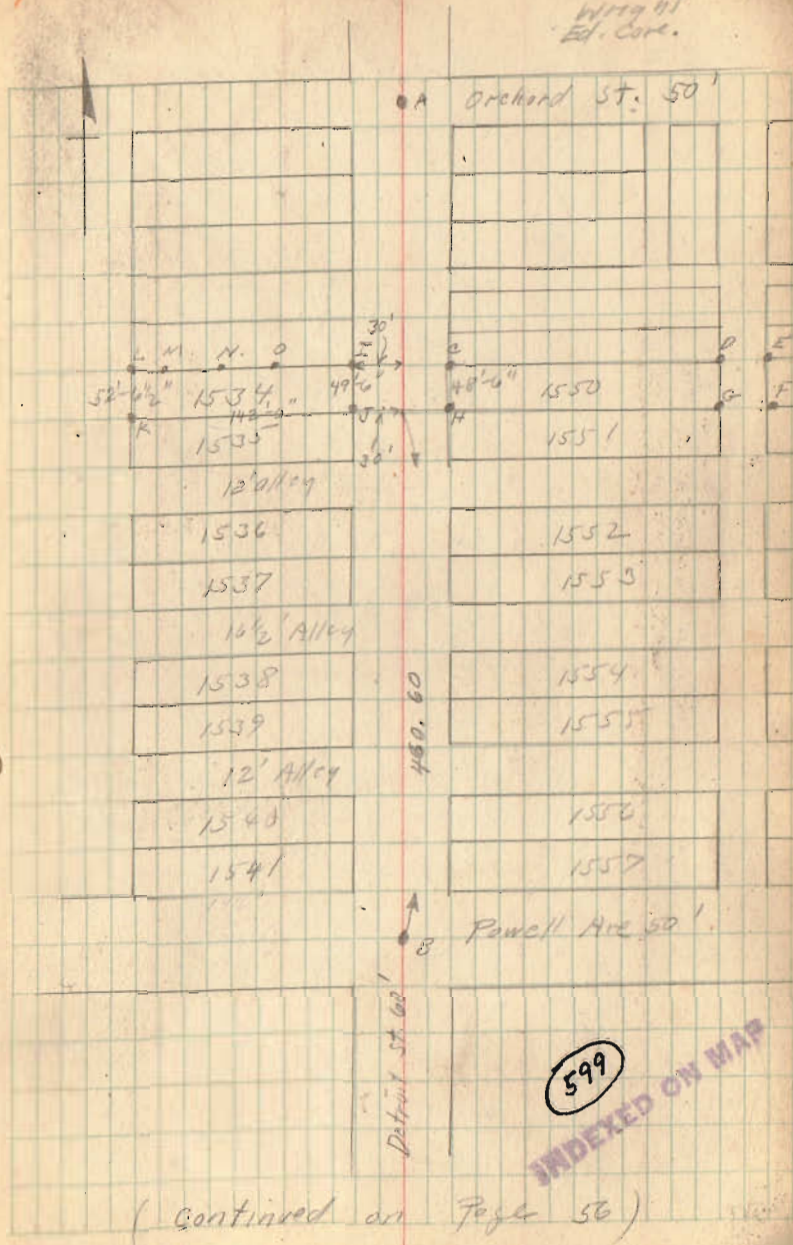 Wright
Ed. Core.
A Orchard St. 50'
30'
L M. N. O C D E
52'-6½" 1534 49'-6" 48'-6" 1550
K J H G F
1535 30' 1551
12' alley
1536 1552
1537 1553
16½' Alley
1538 1554
1539 1555
460.60
12' Alley
1540 1556
1541 1557
B Powell Ave 50'
Detroit St. 60'
599
INDEXED ON MAP
(continued on Page 56)